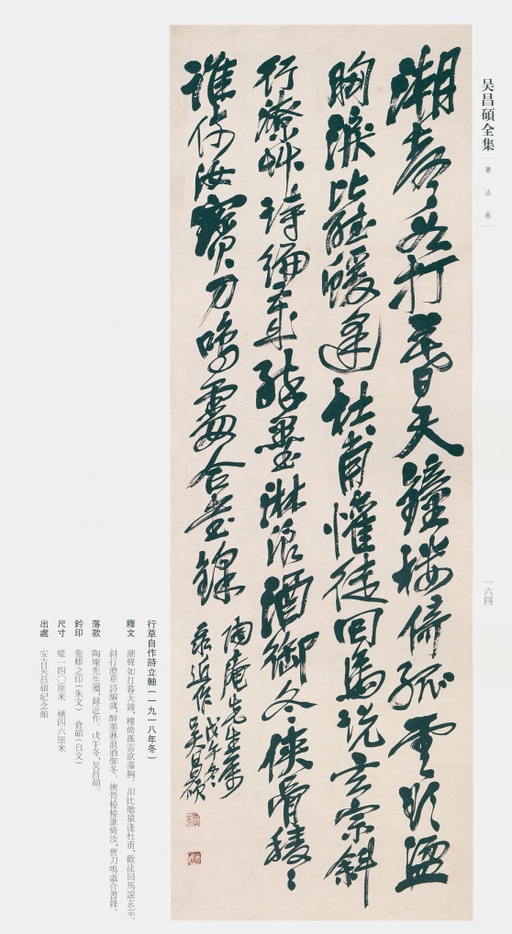 吴昌碩全集
書法卷
一六四
潮聲如打暮天鐘樓倚孤雲欲盪
胸淚比聽猨逢杜甫懽徒回馬説玄宗斜
行潦艸詩編歲醉墨淋浪酒御冬俠骨稜〻
誰倚汝寶刀鳴處合書鋒
陶庵先生屬
彔近作戊午冬吳昌碩
行草自作詩立軸（一九一八年冬）
釋文 潮聲如打暮天鐘，樓倚孤雲欲盪胸。泪比聽猿逢杜甫，歡徒回馬説玄宗。
斜行潦草詩編歲，醉墨淋浪酒御冬。俠骨稜稜誰倚汝，寶刀鳴處合書鋒。
落款 陶庵先生屬，録近作。戊午冬，吴昌碩。
鈐印 俊卿之印（朱文） 倉碩（白文）
尺寸 縱一四〇厘米 横四六厘米
出處 安吉吴昌碩紀念館